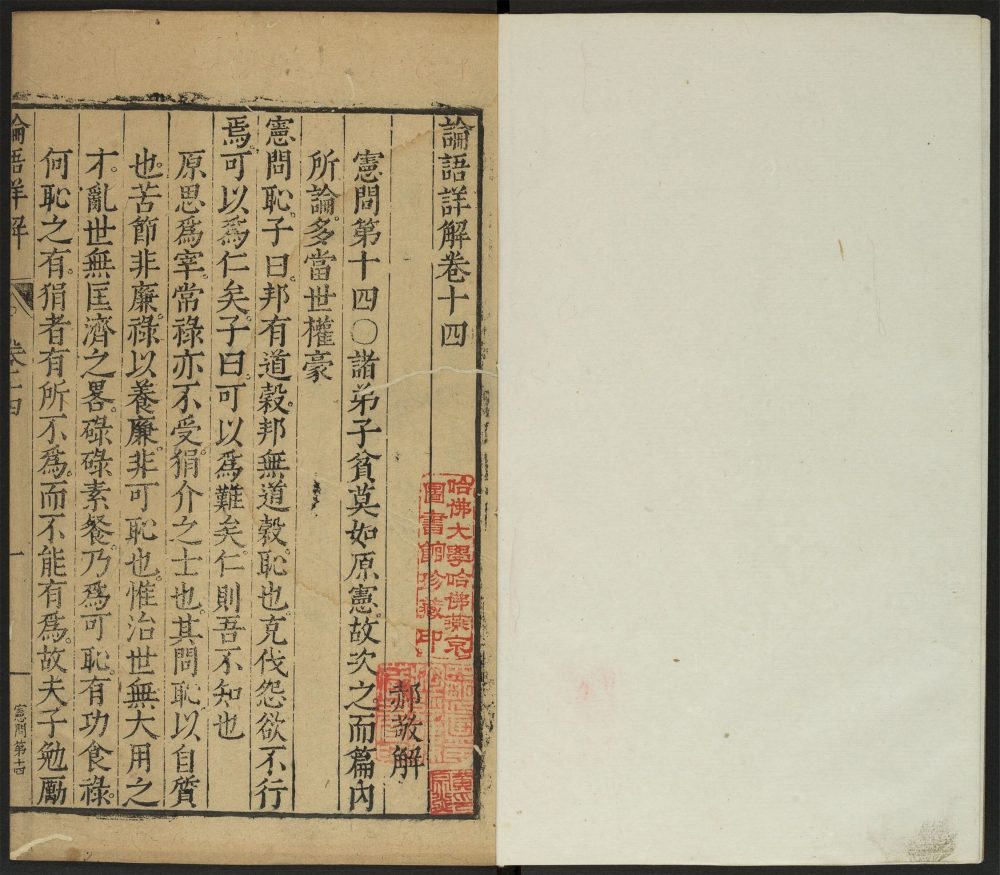 論語詳解卷十四
郝敬解
憲問第十四〇諸弟子貧莫如原憲故次之而篇內
所論多當世權豪
憲問恥子曰邦有道穀邦無道穀恥也克伐怨欲不行
焉可以爲仁矣子曰可以爲難矣仁則吾不知也
原思爲宰常祿亦不受狷介之士也其問恥以自質
也苦節非廉祿以養廉非可恥也惟治世無大用之
才亂世無匡濟之畧碌碌素餐乃爲可恥有功食祿
何恥之有狷者有所不爲而不能有爲故夫子勉勵
論語詳解
卷十四
一
憲問第十四
哈佛大學哈佛燕京
圖書館珍藏印